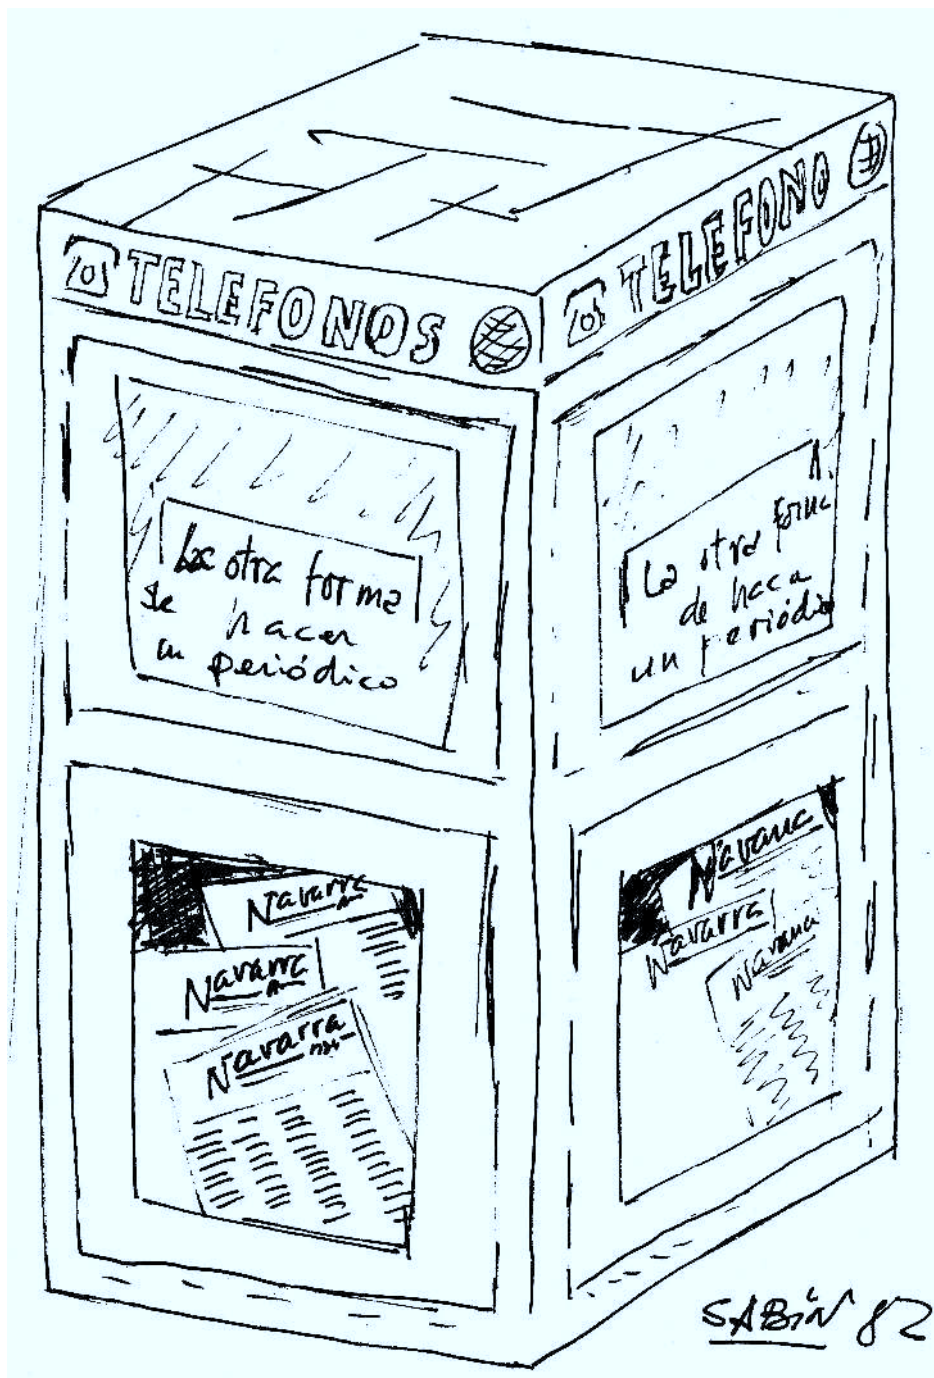 TELEFONOS
TELEFONO
La otra forma
de hacer
un periódico
La otra forma
de hacer
un periódico
Navarra
Navarra
Navarra
Navarra
Navarra
Navarra
SABiN 82